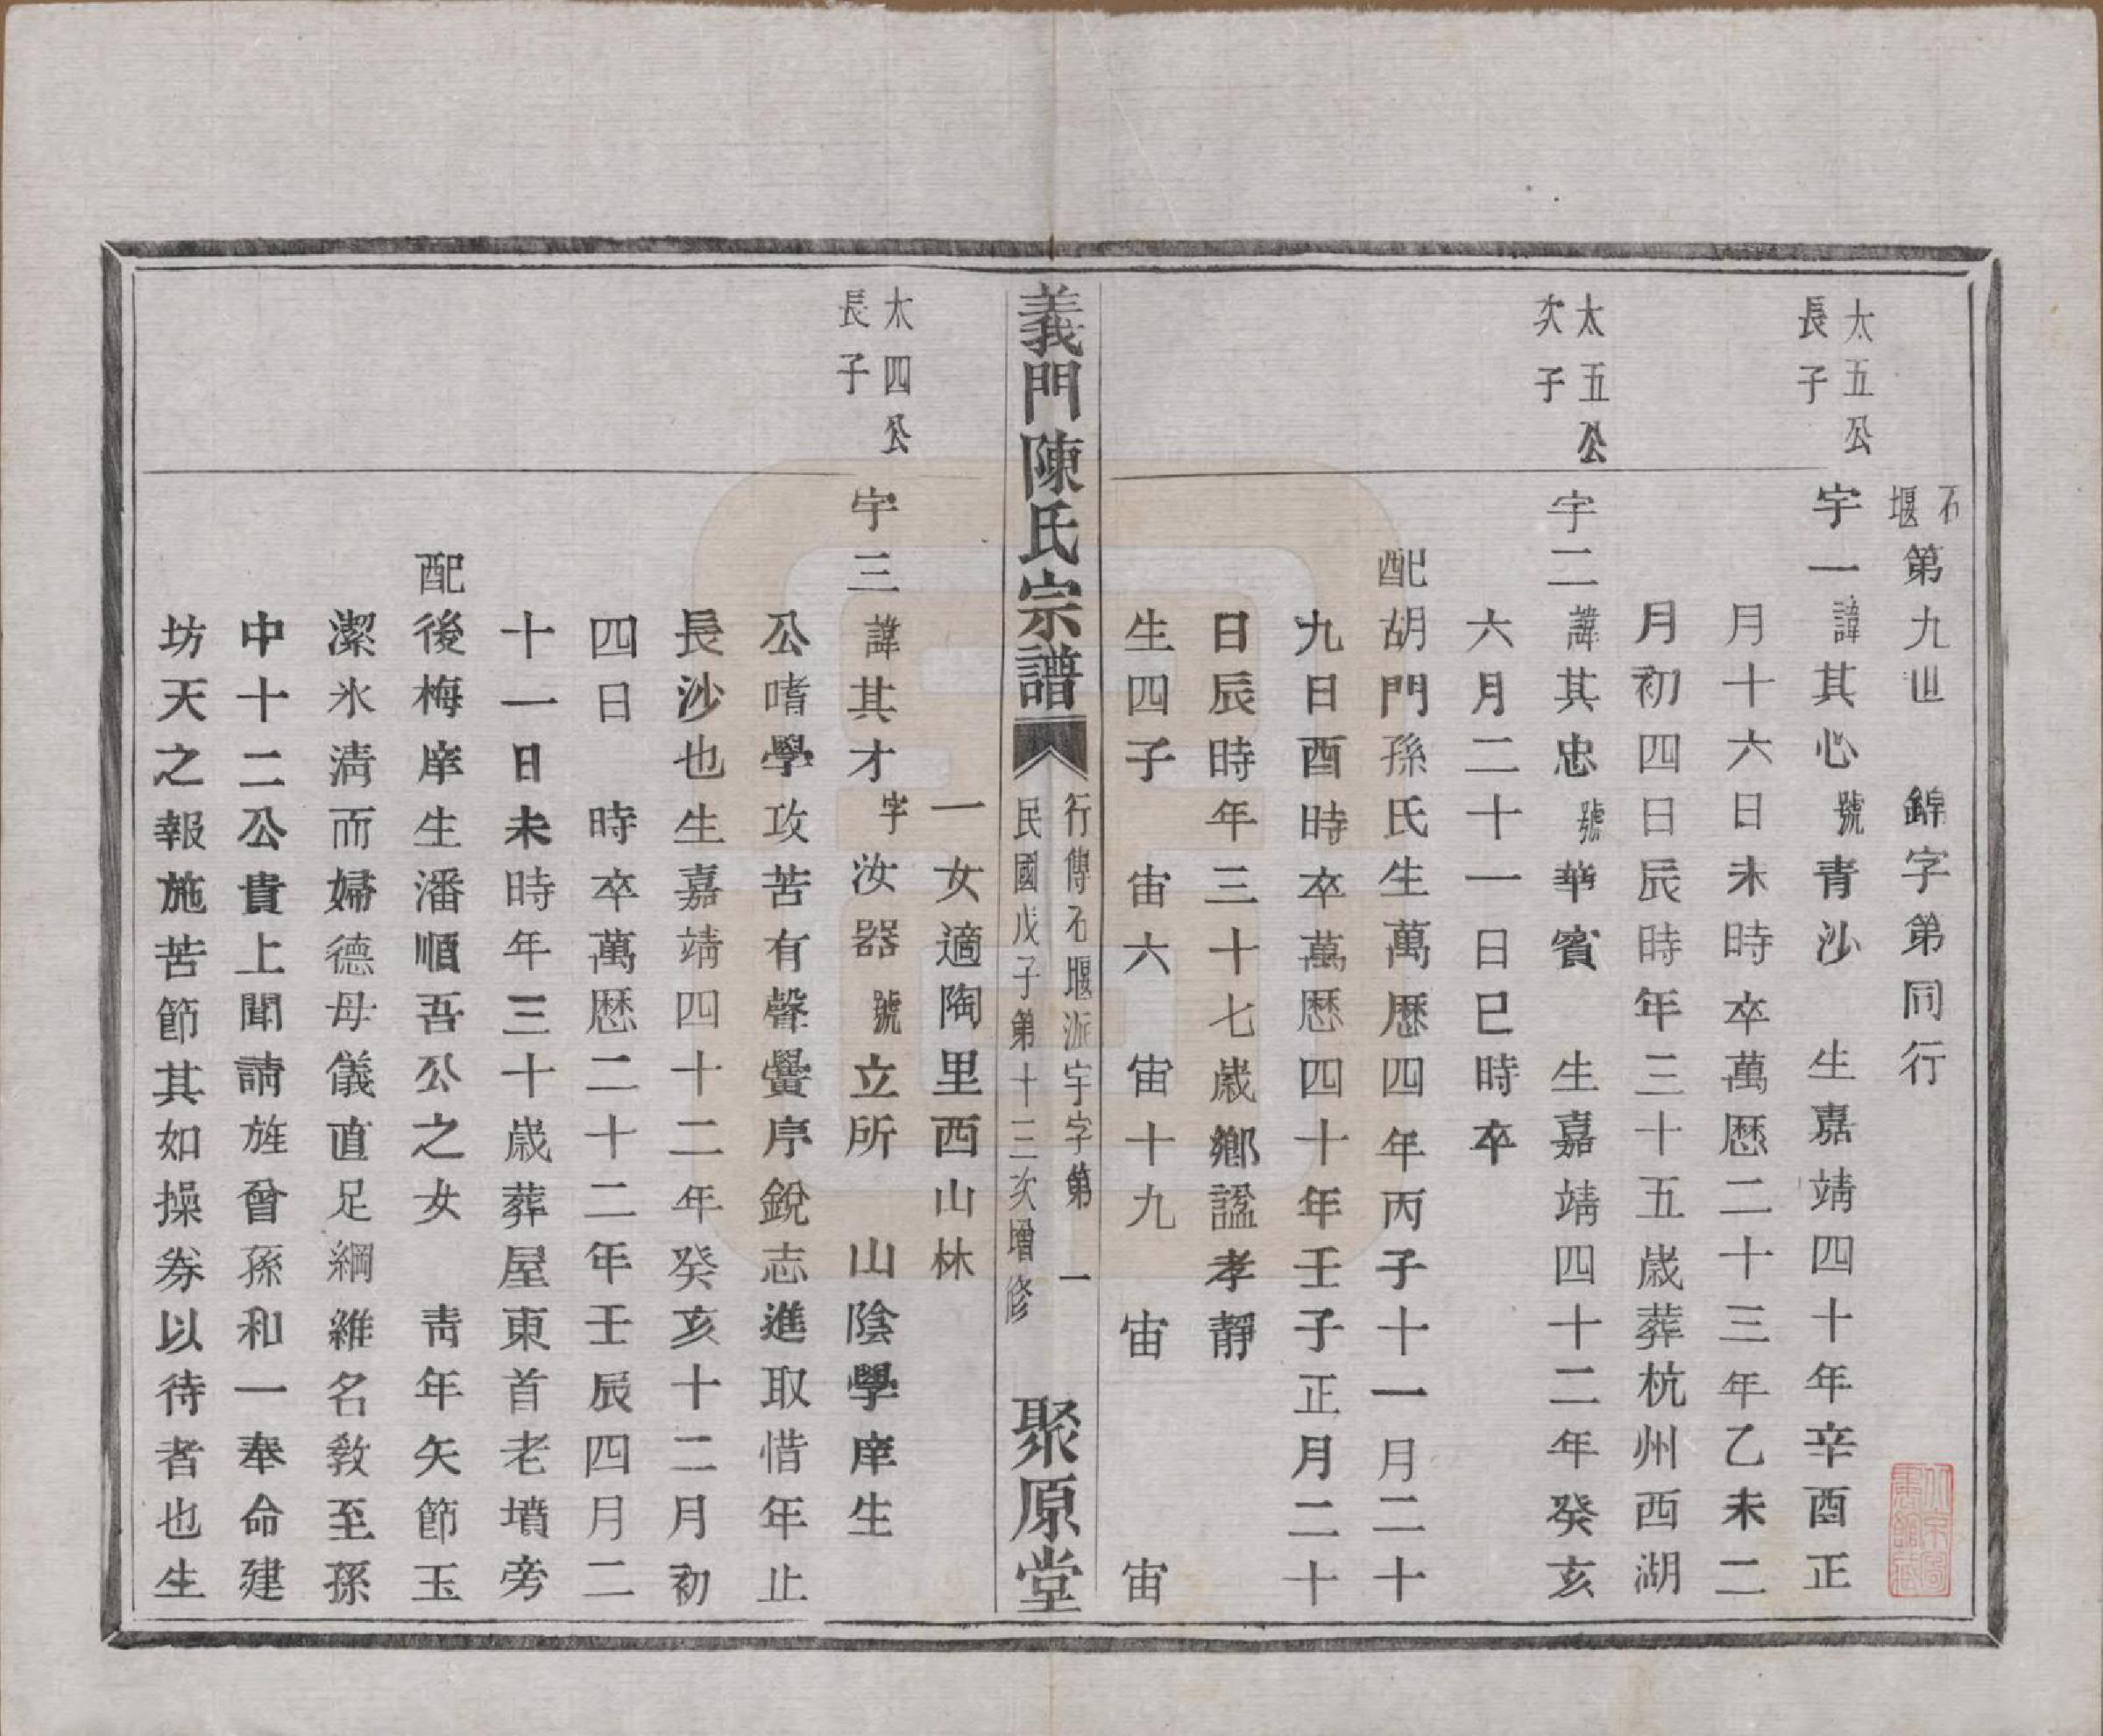 石堰第九世 錦字第同行
太五公長子
宇一諱其心號青沙 生嘉靖四十年辛酉正
月十六日未時卒萬歷二十三年乙未二
月初四日辰時年三十五歲葬杭州西湖
太五公次子
宇二諱其忠號華賓 生嘉靖四十二年癸亥
六月二十一日巳時卒
配胡門孫氏生萬歷四年丙子十一月二十
九日酉時卒萬歷四十年壬子正月二十
日辰時年三十七歲鄉諡孝靜
生四子 宙六 宙十九 宙 宙
義門陳氏宗譜
行傳石堰派宇字第 一
民國戊子第十三次增修
聚原堂
一女適陶里西山林
太四公長子
宇三諱其才字汝器號立所 山陰學庠生
公嗜學攻苦有聲黌序銳志進取惜年止
長沙也生嘉靖四十二年癸亥十二月初
四日 時卒萬歷二十二年壬辰四月二
十一日未時年三十歲葬屋東首老墳旁
配後梅庠生潘順吾公之女 靑年矢節玉
潔氷淸而婦德母儀直足綱維名敎至孫
中十二公貴上聞請旌曾孫和一奉命建
坊天之報施苦節其如操券以待者也生